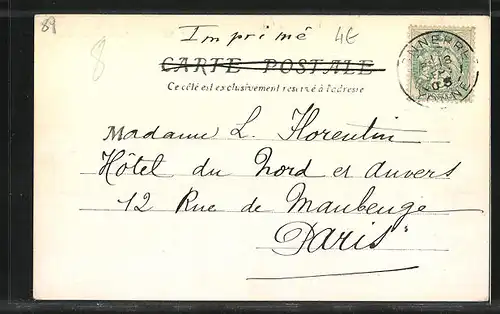 89
Imprimé 4E
8
CARTE POSTALE
Ce côté est exclusivement réservé à l'adresse
Madame L. Florentin
Hôtel du Nord et Anvers
12 Rue de Maubeuge
Paris